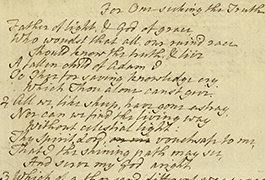 For One seeking the Truth
Father of light, & God of grace
Who wouldst that all our mind race
Should know the truth, & live
A fallen child of Adam I
To Thee for saving knowledge cry
Which Thou alone canst give.
2 All we, like sheep, have gone astray,
Nor can we find the living way
Without celestial light:
Thy Spirit, Lord, vouchsafe to me,
That I the shining path may see,
And serve my God aright.
3 Which of a